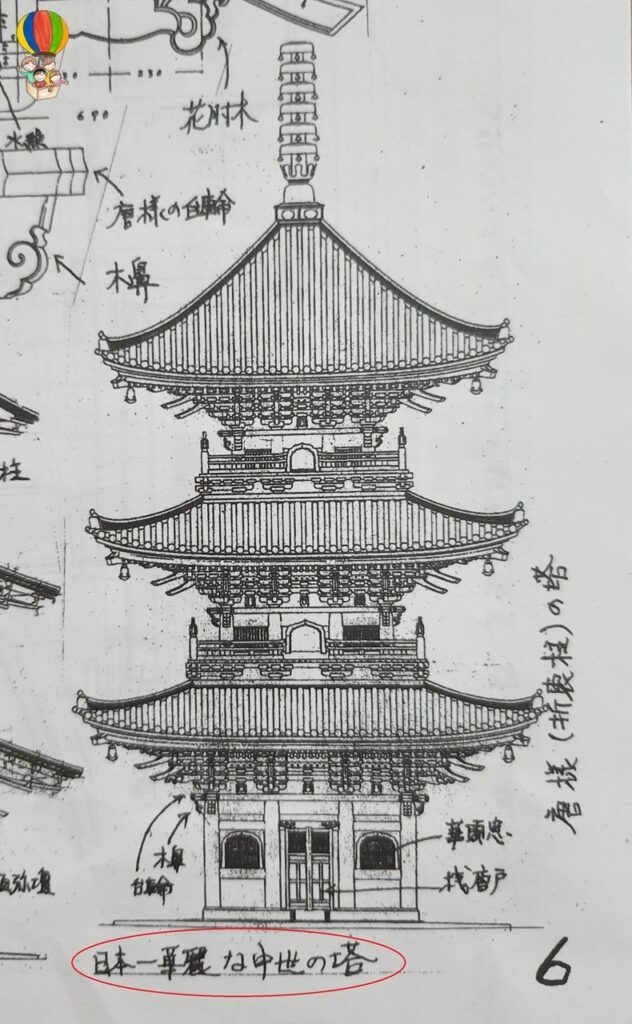 花肘木
690
水繰
唐様の台輪
木鼻
柱
唐様(折衷柱)の塔
華頭窓
木鼻
台輪
桟唐戸
弥壇
日本一華麗な中世の塔
6